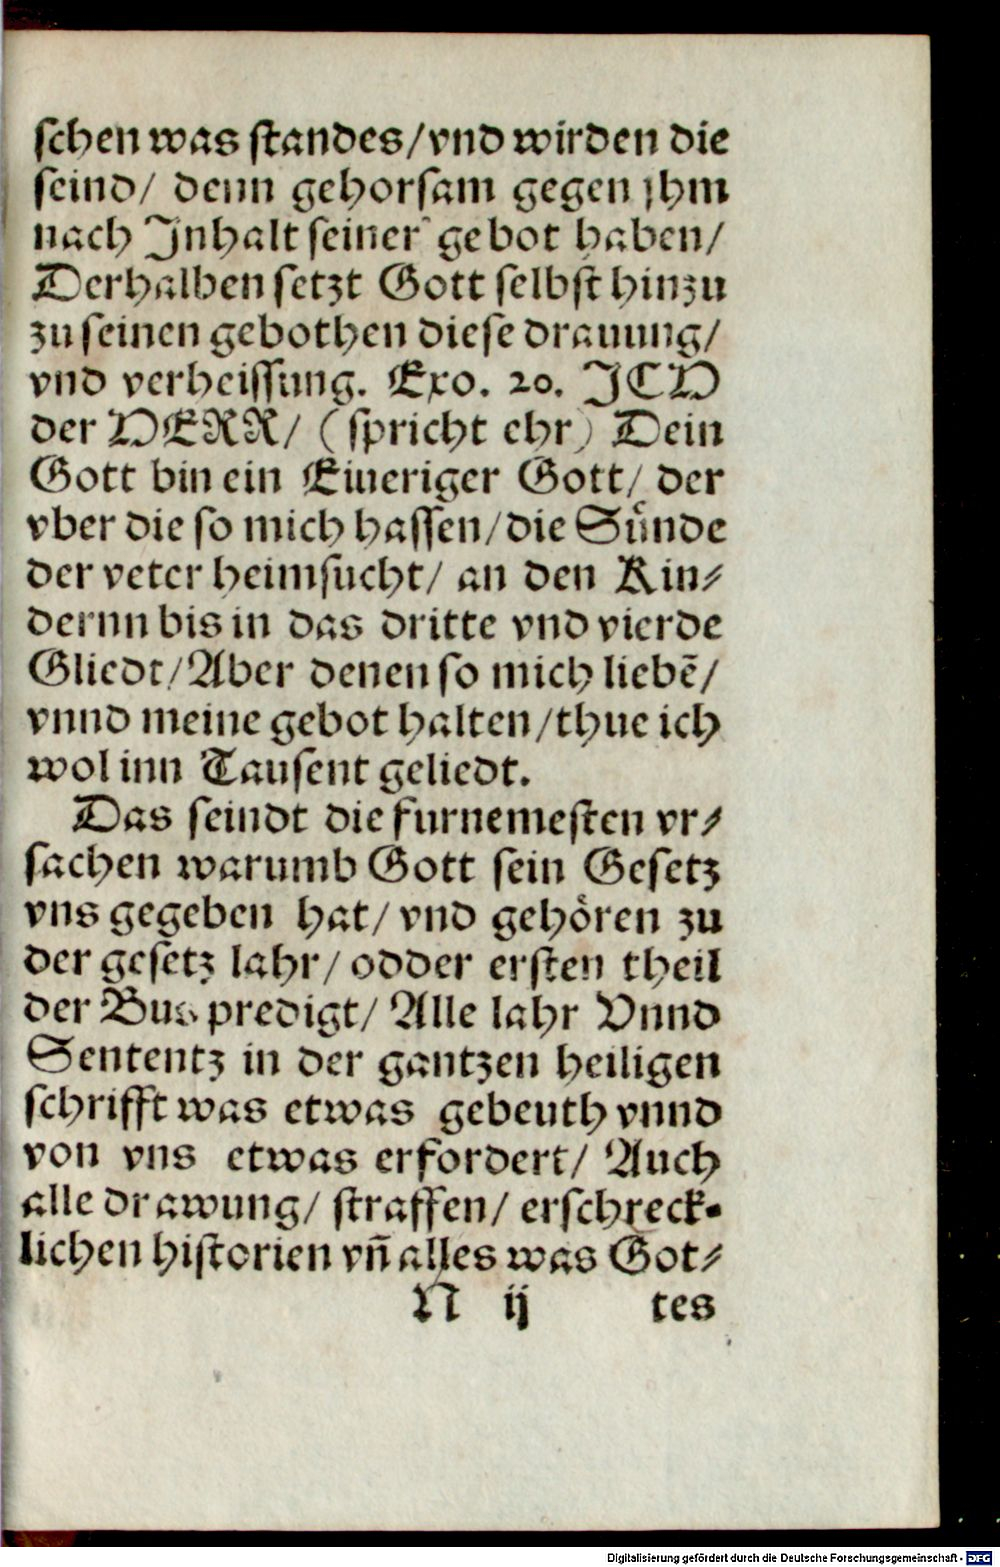 ſchen was ſtandes/vnd wirden die
ſeind/ denn gehorſam gegen jhm
nach Jnhalt ſeiner gebot haben/
Derhalben ſetzt Gott ſelbſt hinzu
zu ſeinen gebothen dieſe drauung/
vnd verheiſſung. Exo. 20. JCH
der HERR/ (ſpricht ehr) Dein
Gott bin ein Eiueriger Gott/ der
vber die ſo mich haſſen/die Suͤnde
der veter heimſucht/ an den Kin⸗
dernn bis in das dritte vnd vierde
Gliedt/Aber denen ſo mich liebē/
vnnd meine gebot halten/thue ich
wol inn Tauſent geliedt.
Das ſeindt die furnemeſten vr⸗
ſachen warumb Gott ſein Geſetz
vns gegeben hat/ vnd gehoͤren zu
der geſetz lahr/ odder erſten theil
der Bus predigt/ Alle lahr Vnnd
Sententz in der gantzen heiligen
ſchrifft was etwas gebeuth vnnd
von vns etwas erfordert/ Auch
alle drawung/ ſtraffen/ erſchreck⸗
lichen hiſtorien vn̄ alles was Got⸗
N ij tes
Digitalisierung gefördert durch die Deutsche Forschungsgemeinschaft - DFG